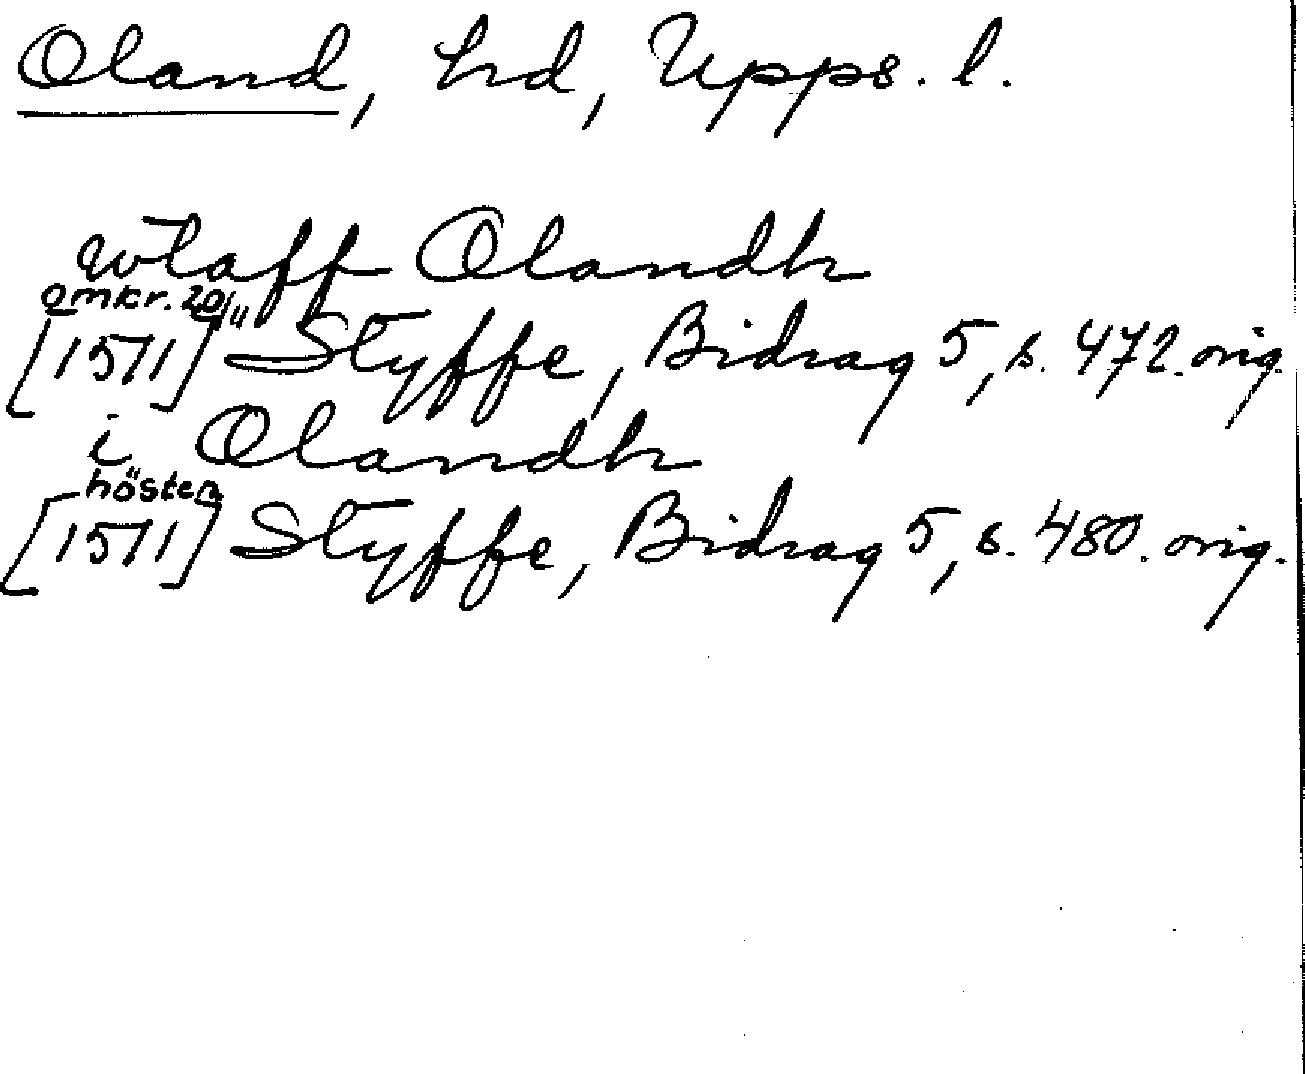 Oland, hd, Upps. l.
wtaff Olandh
omkr. 20/11
[1511] Styffe, Bidrag 5, s. 472. orig.
i Olandh
hösten
[1511] Styffe, Bidrag 5, s. 480. orig.